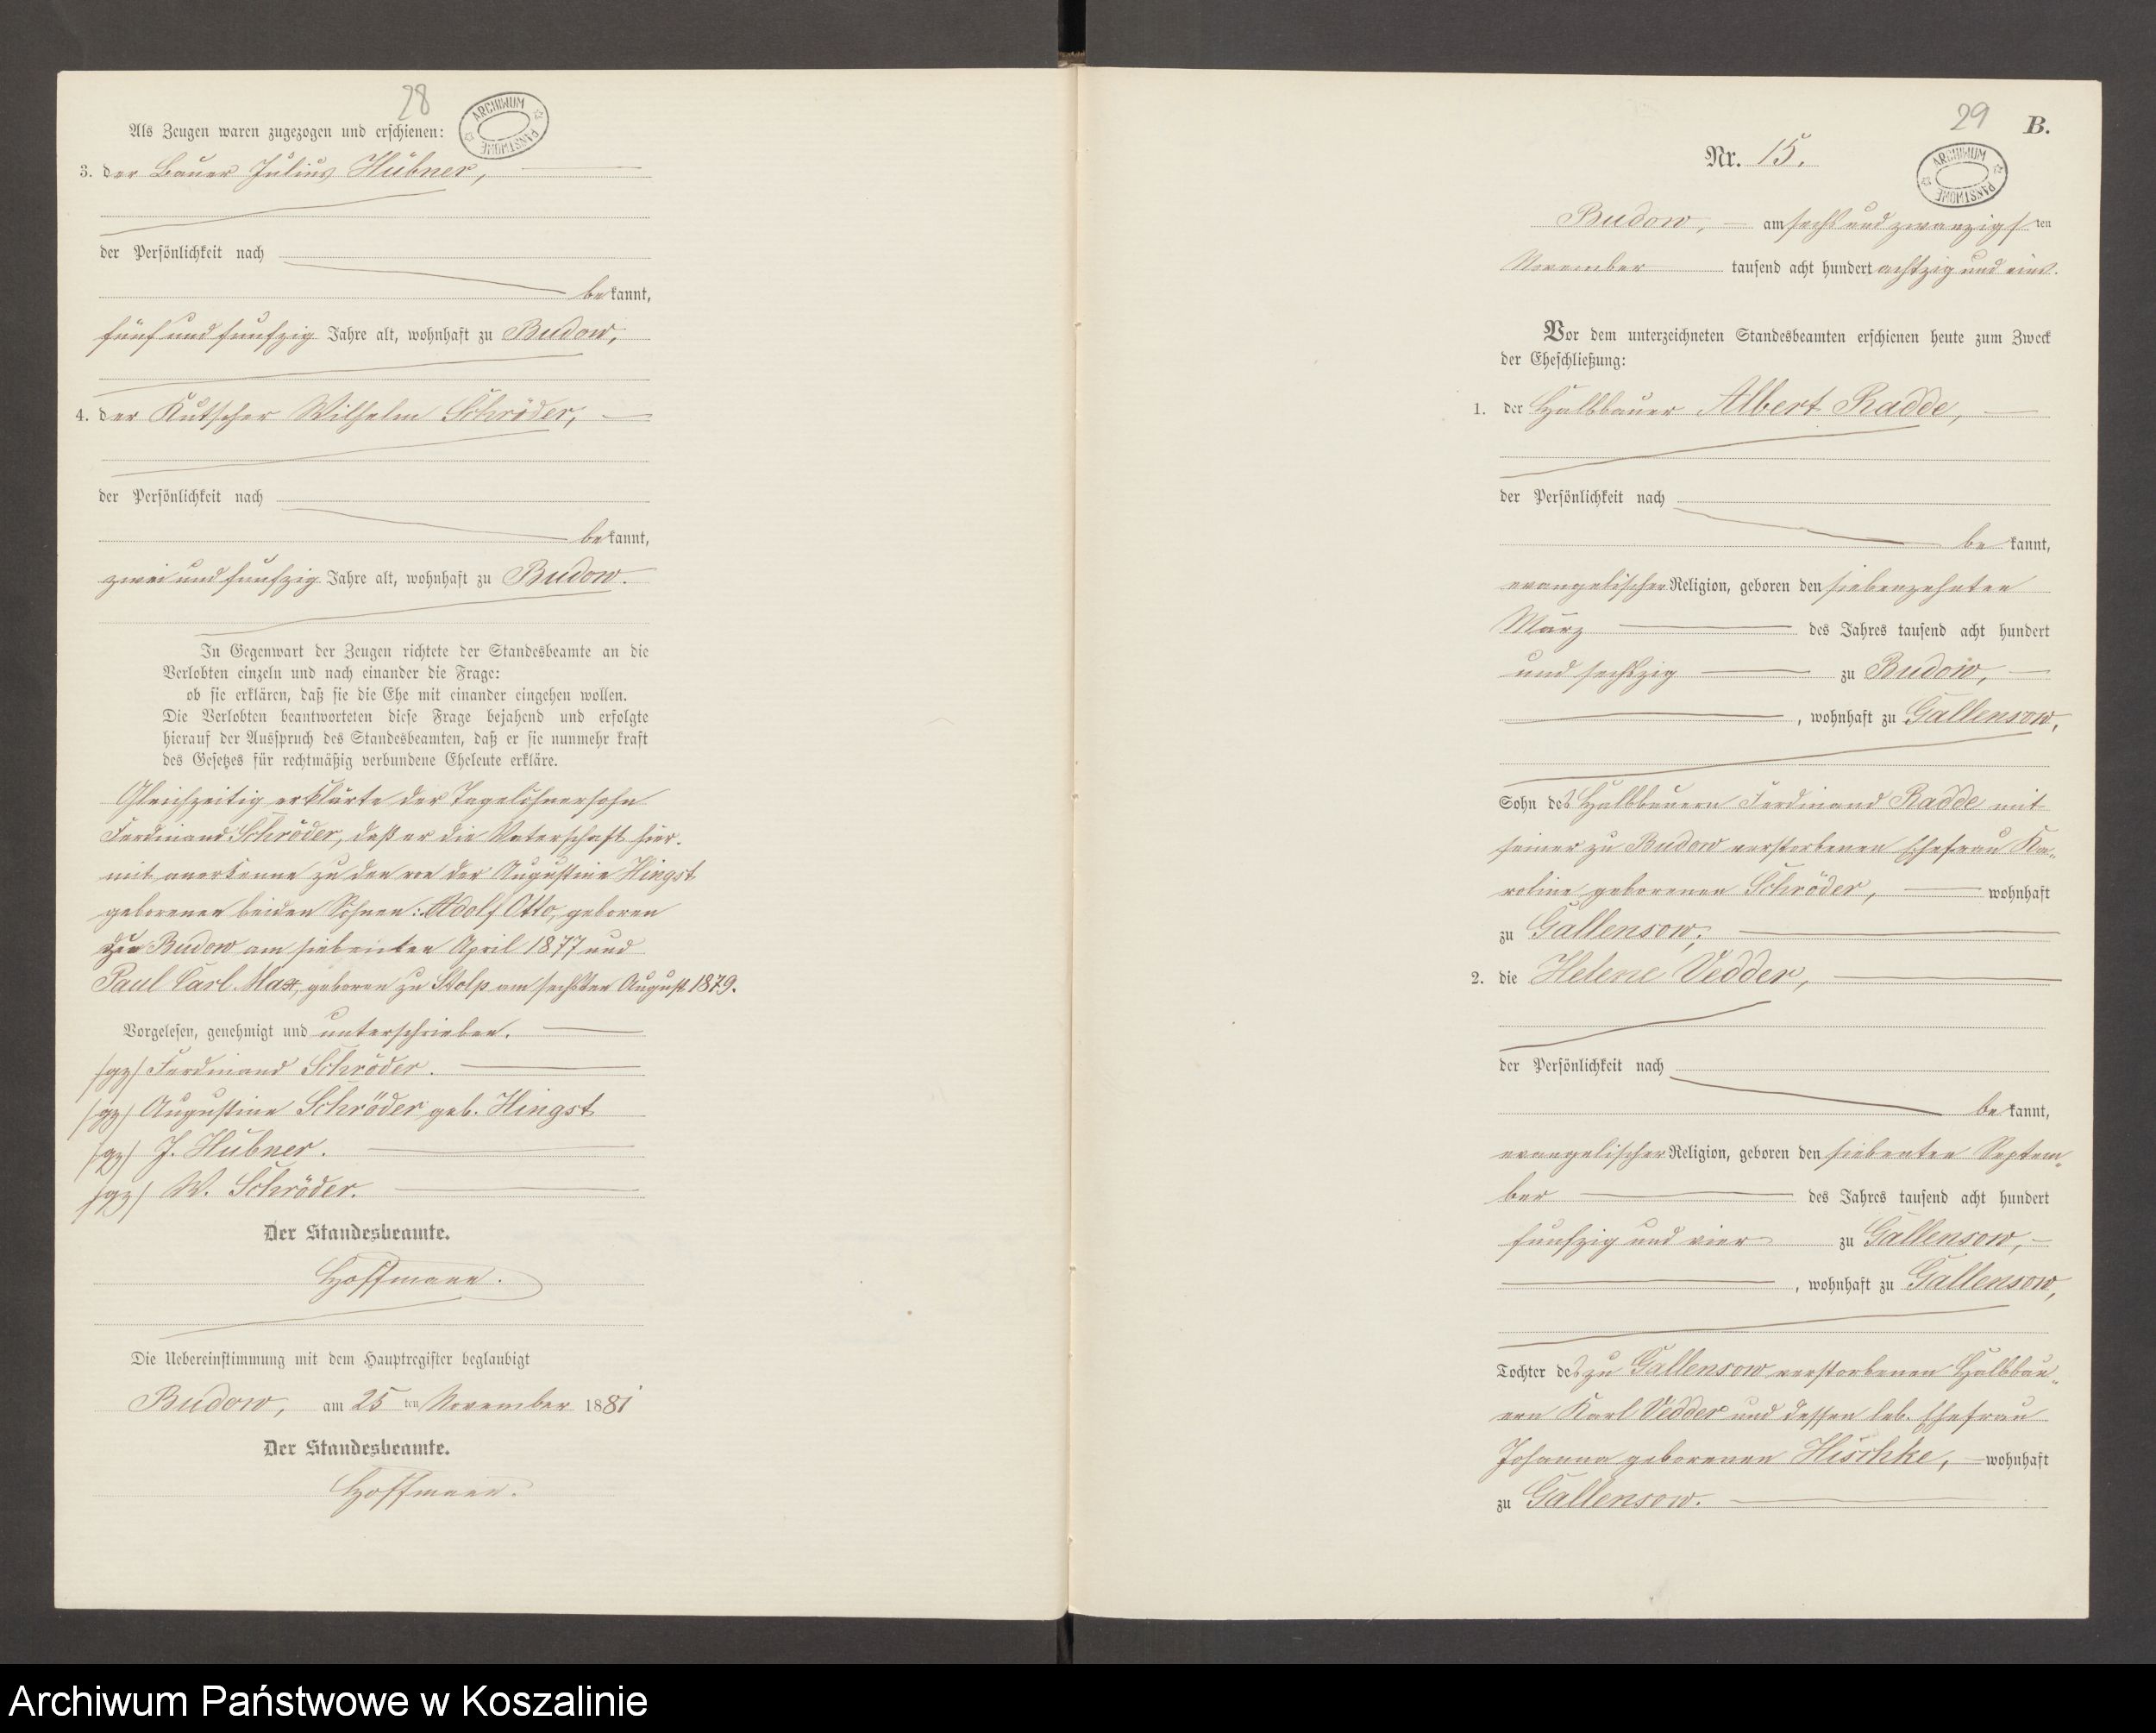 28
ARCHIWUM PAŃSTWOWE
Als Zeugen waren zugezogen und erschienen:
3. der Bauer Julius Hübner,
der Persönlichkeit nach
bekannt,
fünf und funfzig Jahre alt, wohnhaft zu Budow,
4. der Kutscher Wilhelm Schröder,
der Persönlichkeit nach
bekannt,
zwei und funfzig Jahre alt, wohnhaft zu Budow.
In Gegenwart der Zeugen richtete der Standesbeamte an die
Verlobten einzeln und nach einander die Frage:
ob sie erklären, daß sie die Ehe mit einander eingehen wollen.
Die Verlobten beantworteten diese Frage bejahend und erfolgte
hierauf der Ausspruch des Standesbeamten, daß er sie nunmehr kraft
des Gesetzes für rechtmäßig verbundene Eheleute erkläre.
Gleichzeitig erklärte der Tagelöhnersohn
Ferdinand Schröder, daß er die Vaterschaft hier-
mit anerkenne zu den von der Augustine Hingst
geborenen beiden Söhnen: Adolf Otto, geboren
zu Budow am siebenten April 1877 und
Paul Carl Max, geboren zu Stolp am sechsten August 1879.
Vorgelesen, genehmigt und unterschrieben.
(gz) Ferdinand Schröder.
(gz) Augustine Schröder geb. Hingst
(gz) J. Hübner.
(gz) W. Schröder.
Der Standesbeamte.
Hoffmann.
Die Uebereinstimmung mit dem Hauptregister beglaubigt
Budow, am 25 ten November 1881
Der Standesbeamte.
Hoffmann.
29
B.
ARCHIWUM PAŃSTWOWE
Nr. 15.
Budow, am sechs und zwanzigsten
November tausend acht hundert achtzig und eins.
Vor dem unterzeichneten Standesbeamten erschienen heute zum Zweck
der Eheschließung:
1. der Halbbauer Albert Radde,
der Persönlichkeit nach
bekannt,
evangelischer Religion, geboren den siebenzehnten
März des Jahres tausend acht hundert
und sechszig zu Budow,
, wohnhaft zu Gallensow,
Sohn des Halbbauern Ferdinand Radde mit
seiner zu Budow verstorbenen Ehefrau Ka-
roline geborenen Schröder, wohnhaft
zu Gallensow,
2. die Helene Vedder,
der Persönlichkeit nach
bekannt,
evangelischer Religion, geboren den siebenten Septem-
ber des Jahres tausend acht hundert
funfzig und vier zu Gallensow,
, wohnhaft zu Gallensow,
Tochter des zu Gallensow verstorbenen Halbbau-
ern Karl Vedder und dessen leb. Ehefrau
Johanna geborenen Hischke, wohnhaft
zu Gallensow.
Archiwum Państwowe w Koszalinie